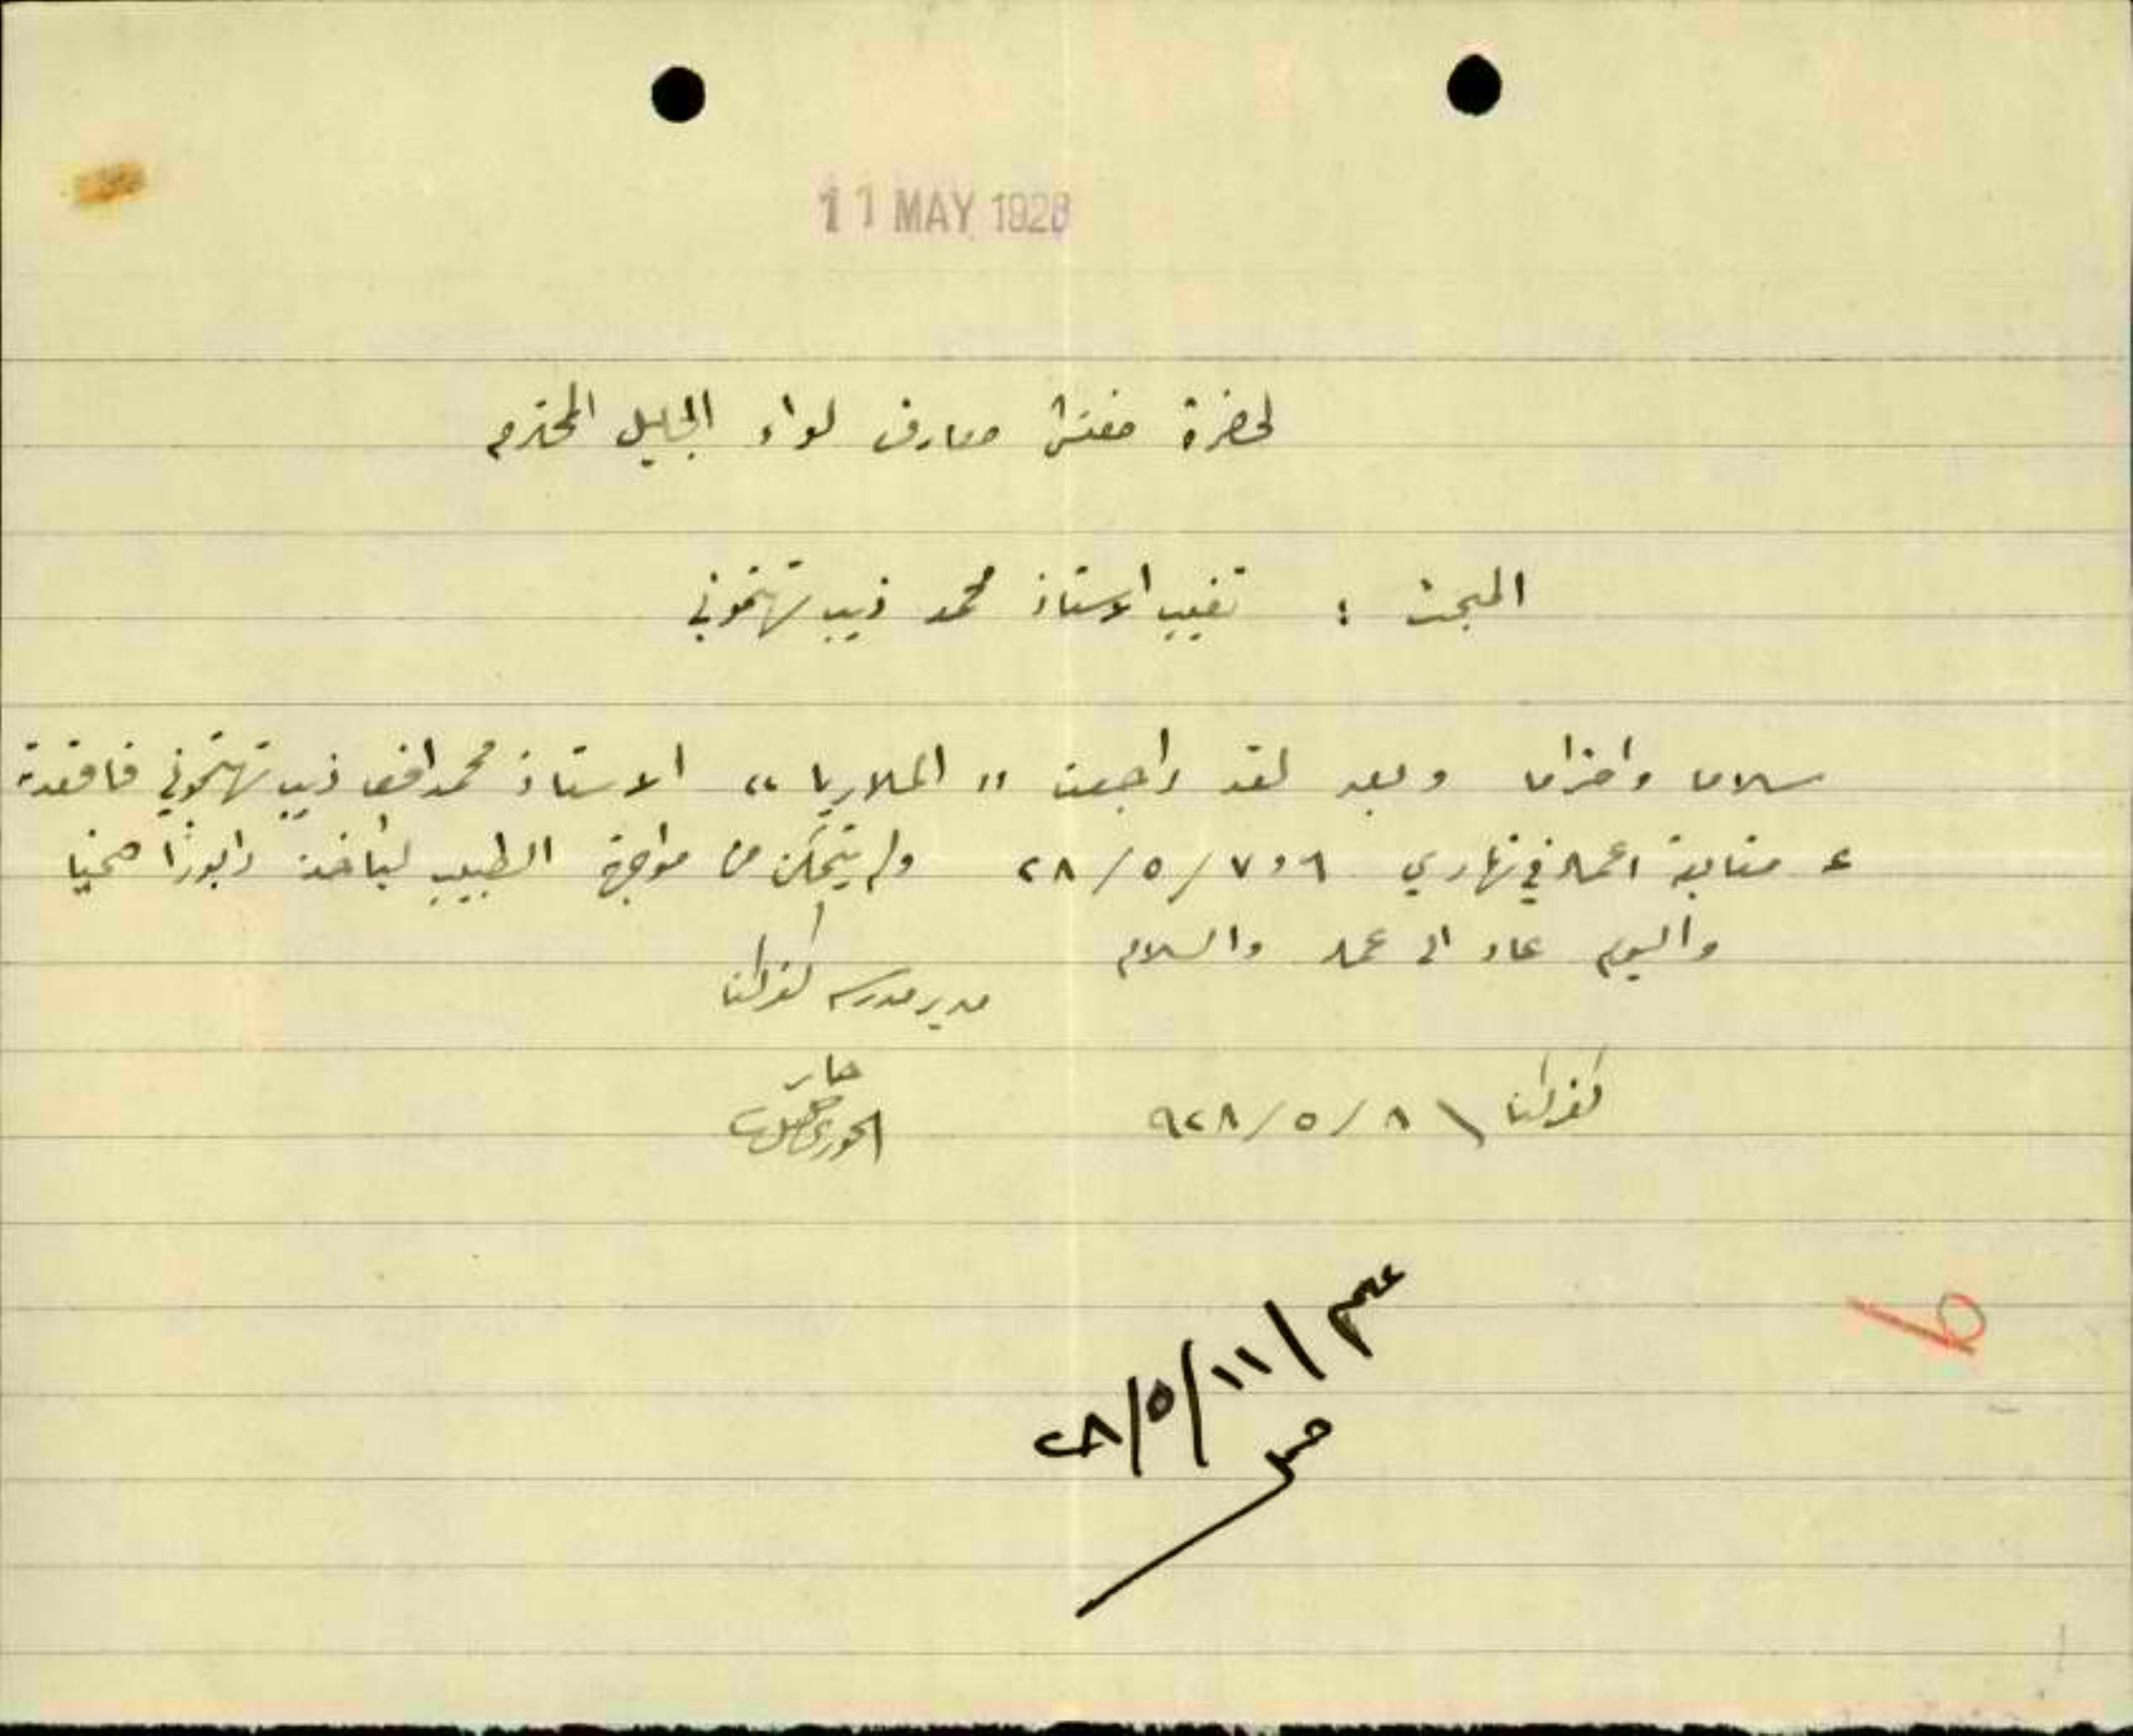 11 MAY 1928
لحضرة مفتش معارف لواء الجليل المحترم
المبحث : تغيب الاستاذ محمد ذيب تهتموني
سلاما واحتراما وبعد لقد راجعت "الملاريا" الاستاذ محمد افندي ذيب تهتموني فاقعدته
عن متابعة اعماله في نهاري ٦ و ٧ / ٥ / ٢٨ ولم يتمكن من مواجهة الطبيب ليأخذ رابورًا صحيًا
واليوم عاد الى عمله والسلام
مدير مدرسة كفركنا
كفركنا \ ٨ / ٥ / ٩٢٨
الخوري
١١ / ٥ / ٢٨